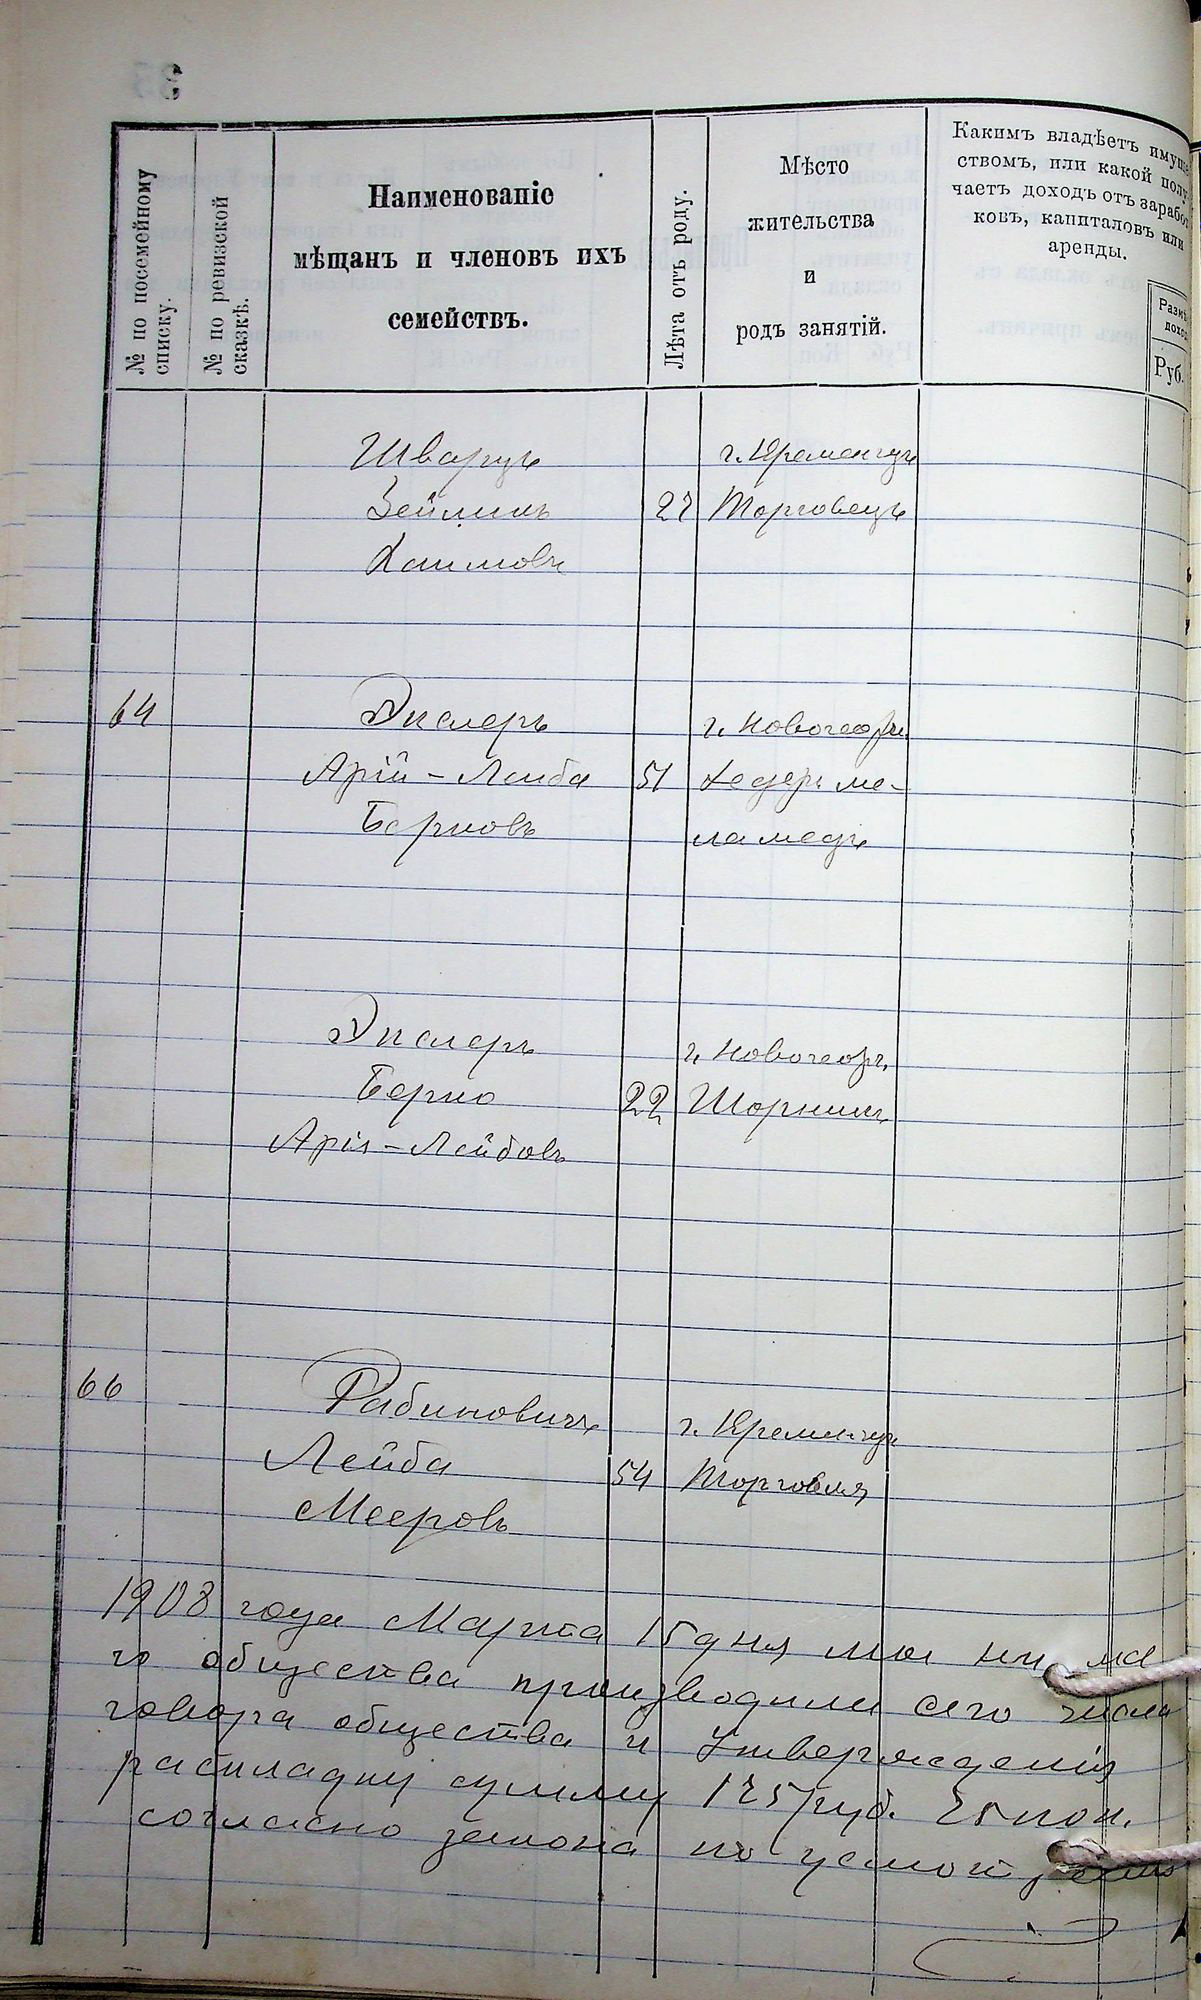 № по посемейному
списку.
№ по ревизской
сказкѣ.
Наименованіе
мѣщанъ и членовъ ихъ
семействъ.
Лѣта отъ роду.
Мѣсто
жительства
и
родъ занятій.
Какимъ владѣетъ имуще
ствомъ, или какой полу
чаетъ доходъ отъ заработ
ковъ, капиталовъ или
аренды.
Руб.
Шварцъ г. Кременчугъ
27 Торговецъ
Хаимовъ
64 Экслеръ г. Новогеорг.
Арій-Лейба 51 Хедеръ ме-
Берковъ ламедъ
Экслеръ г. Новогеорг.
Берко 22 Шорникъ
Арія-Лейбовъ
66 Рабиновичъ г. Кременчугъ
Лейба 54 Торговля
Мееровъ
1908 года Марта 15 дня мы
общества производили сего числа
говора общества и Утвержденія
раскладку сумму руб. коп.
согласно закона по